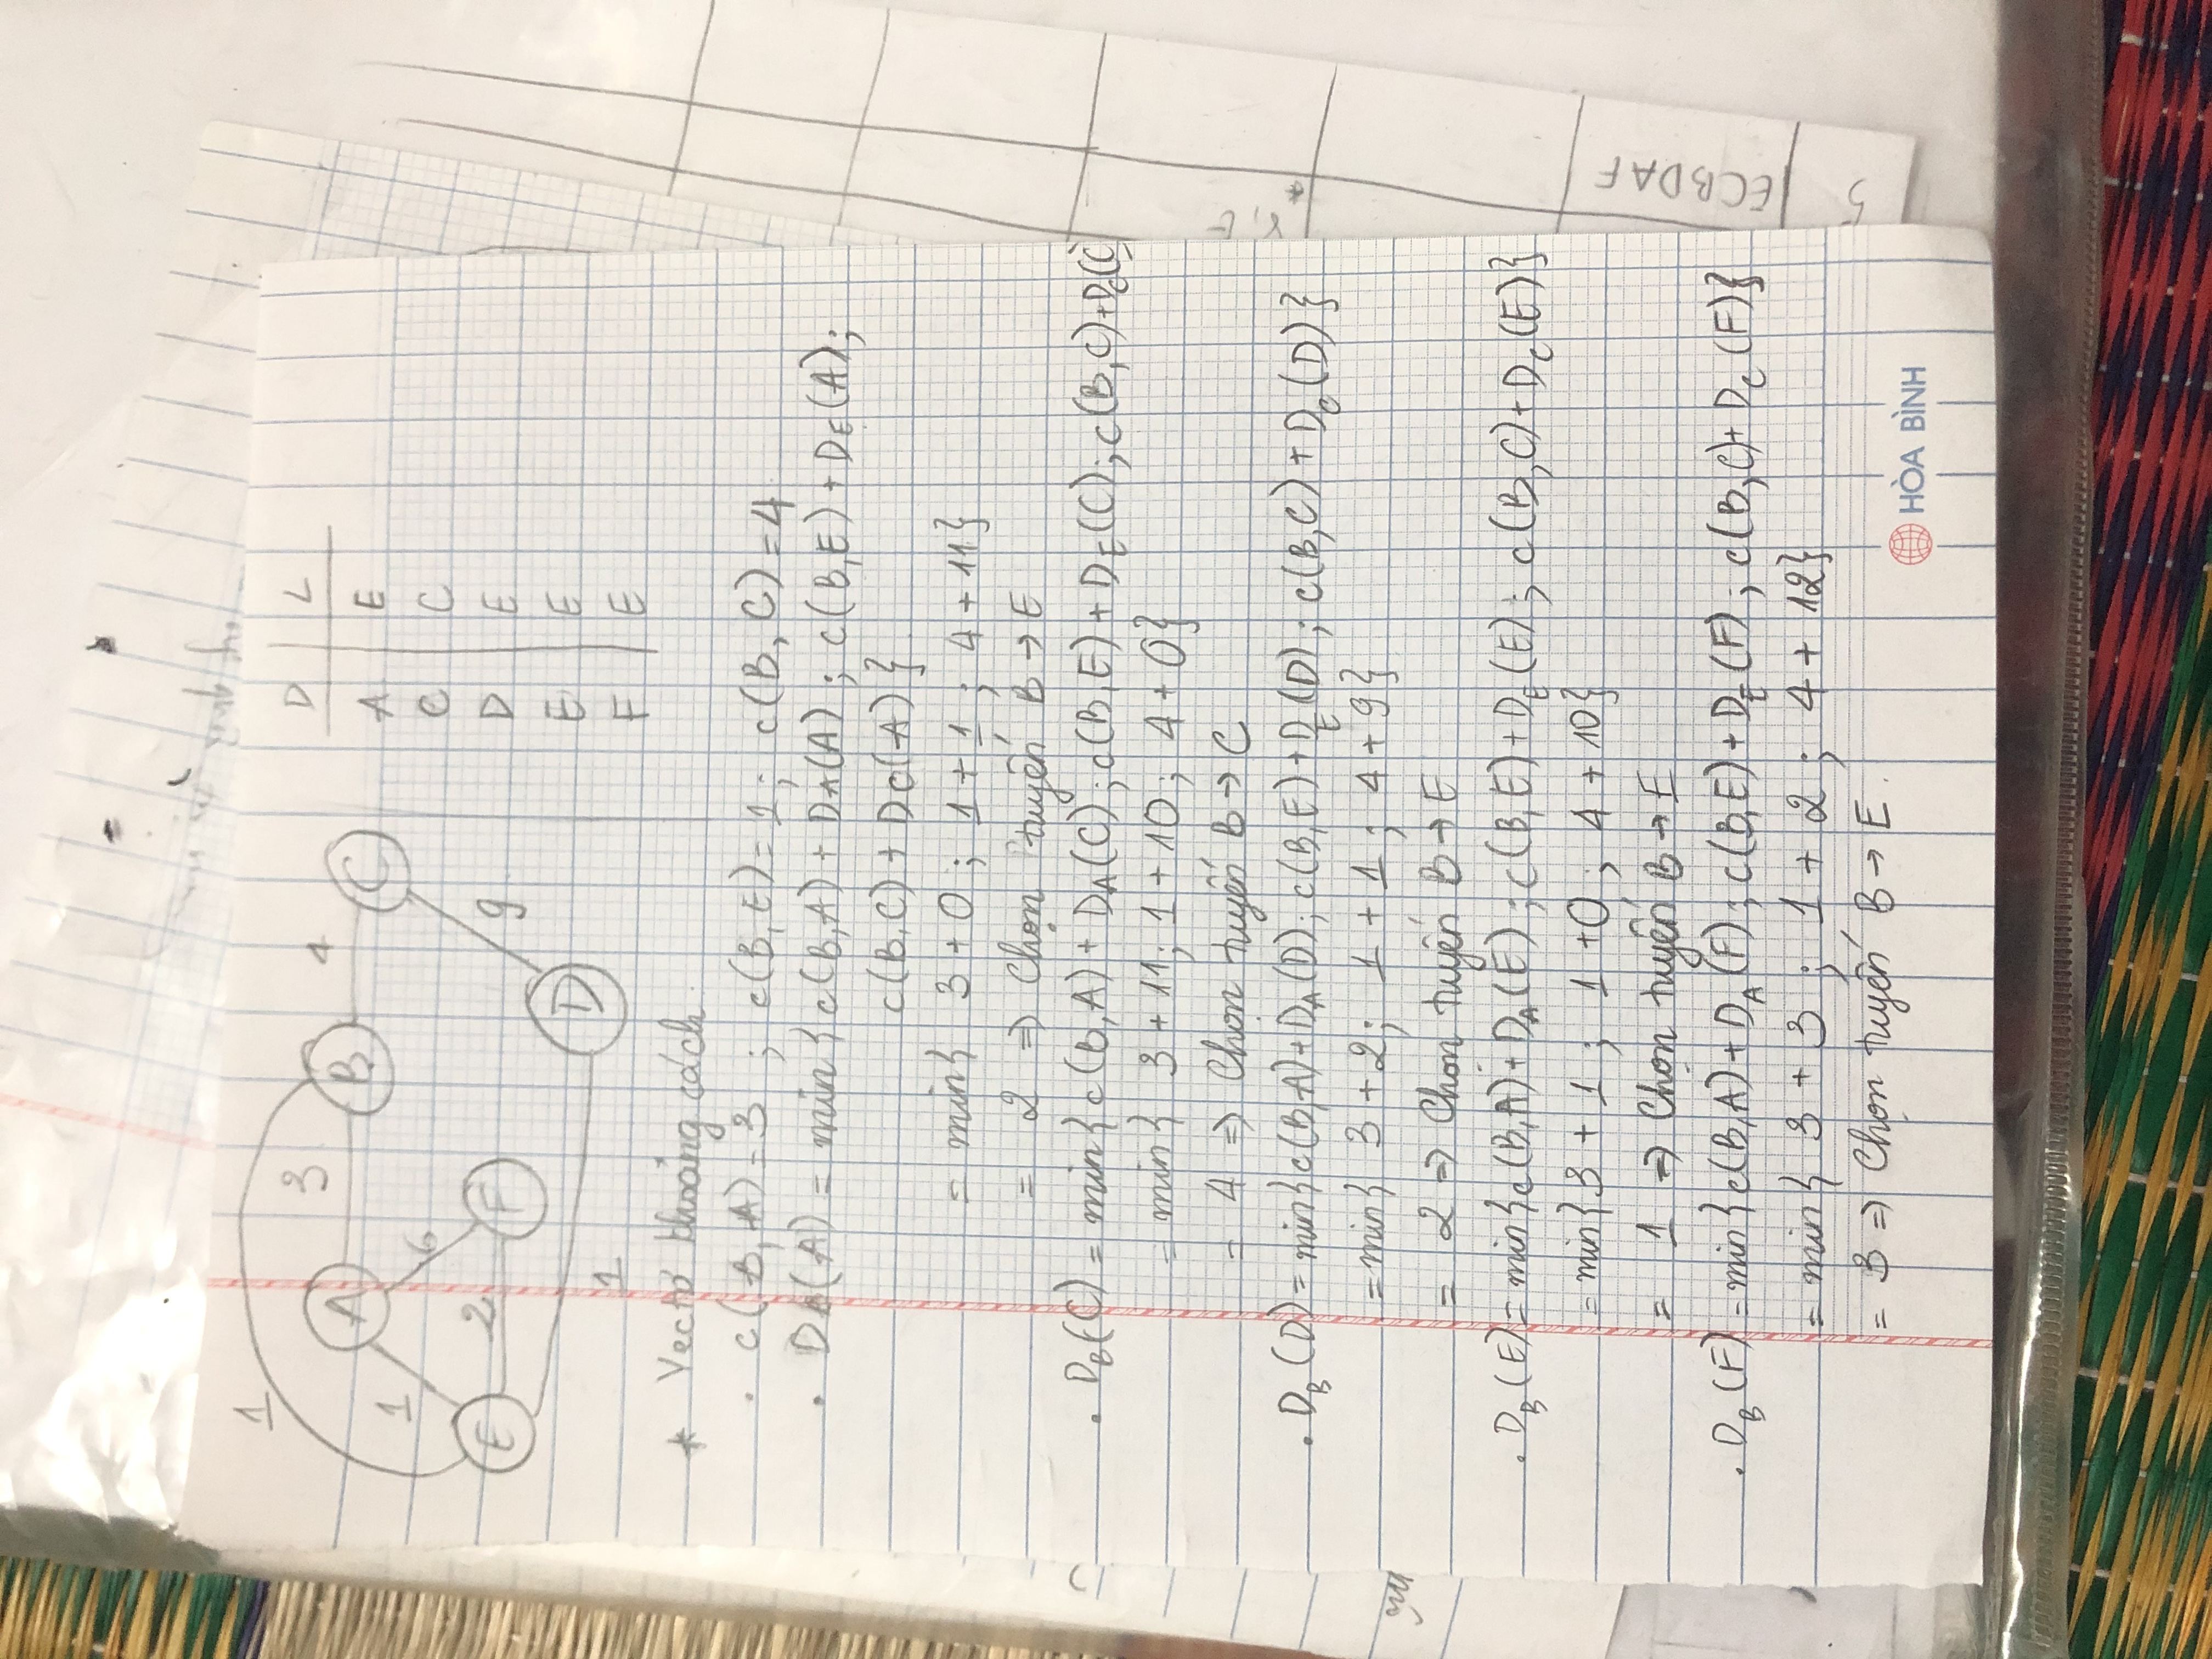 1
3
4
A
B
C
1
6
E
2
F
9
D
1
D L
A E
C C
D E
E E
F E
* Vectơ khoảng cách.
. c(B,A)=3 ; c(B,E)=1; c(B,C)=4
. DB(A) = min{c(B,A) + DA(A) ; c(B,E) + DE(A);
c(B,C) + DC(A)}
= min{ 3+0 ; 1+1 ; 4+11}
= 2 => Chọn tuyến B→E
. DB(C) = min{c(B,A) + DA(C); c(B,E) + DE(C); c(B,C)+DC(C)
= min{ 3+11; 1+10; 4+0}
= 4 => Chọn tuyến B→C
. DB(D) = min{c(B,A)+DA(D); c(B,E)+DE(D); c(B,C)+DC(D)}
= min{ 3+2; 1+1; 4+9}
= 2 => Chọn tuyến B→E
. DB(E) = min{c(B,A)+DA(E); c(B,E)+DE(E); c(B,C)+DC(E)}
= min{3+1; 1+0; 4+10}
= 1 => Chọn tuyến B→E
. DB(F) = min{c(B,A)+DA(F); c(B,E)+DE(F); c(B,C)+DC(F)}
= min{ 3+3; 1+2; 4+12}
= 3 => Chọn tuyến B→E.
HÒA BÌNH
5 ECBDAF